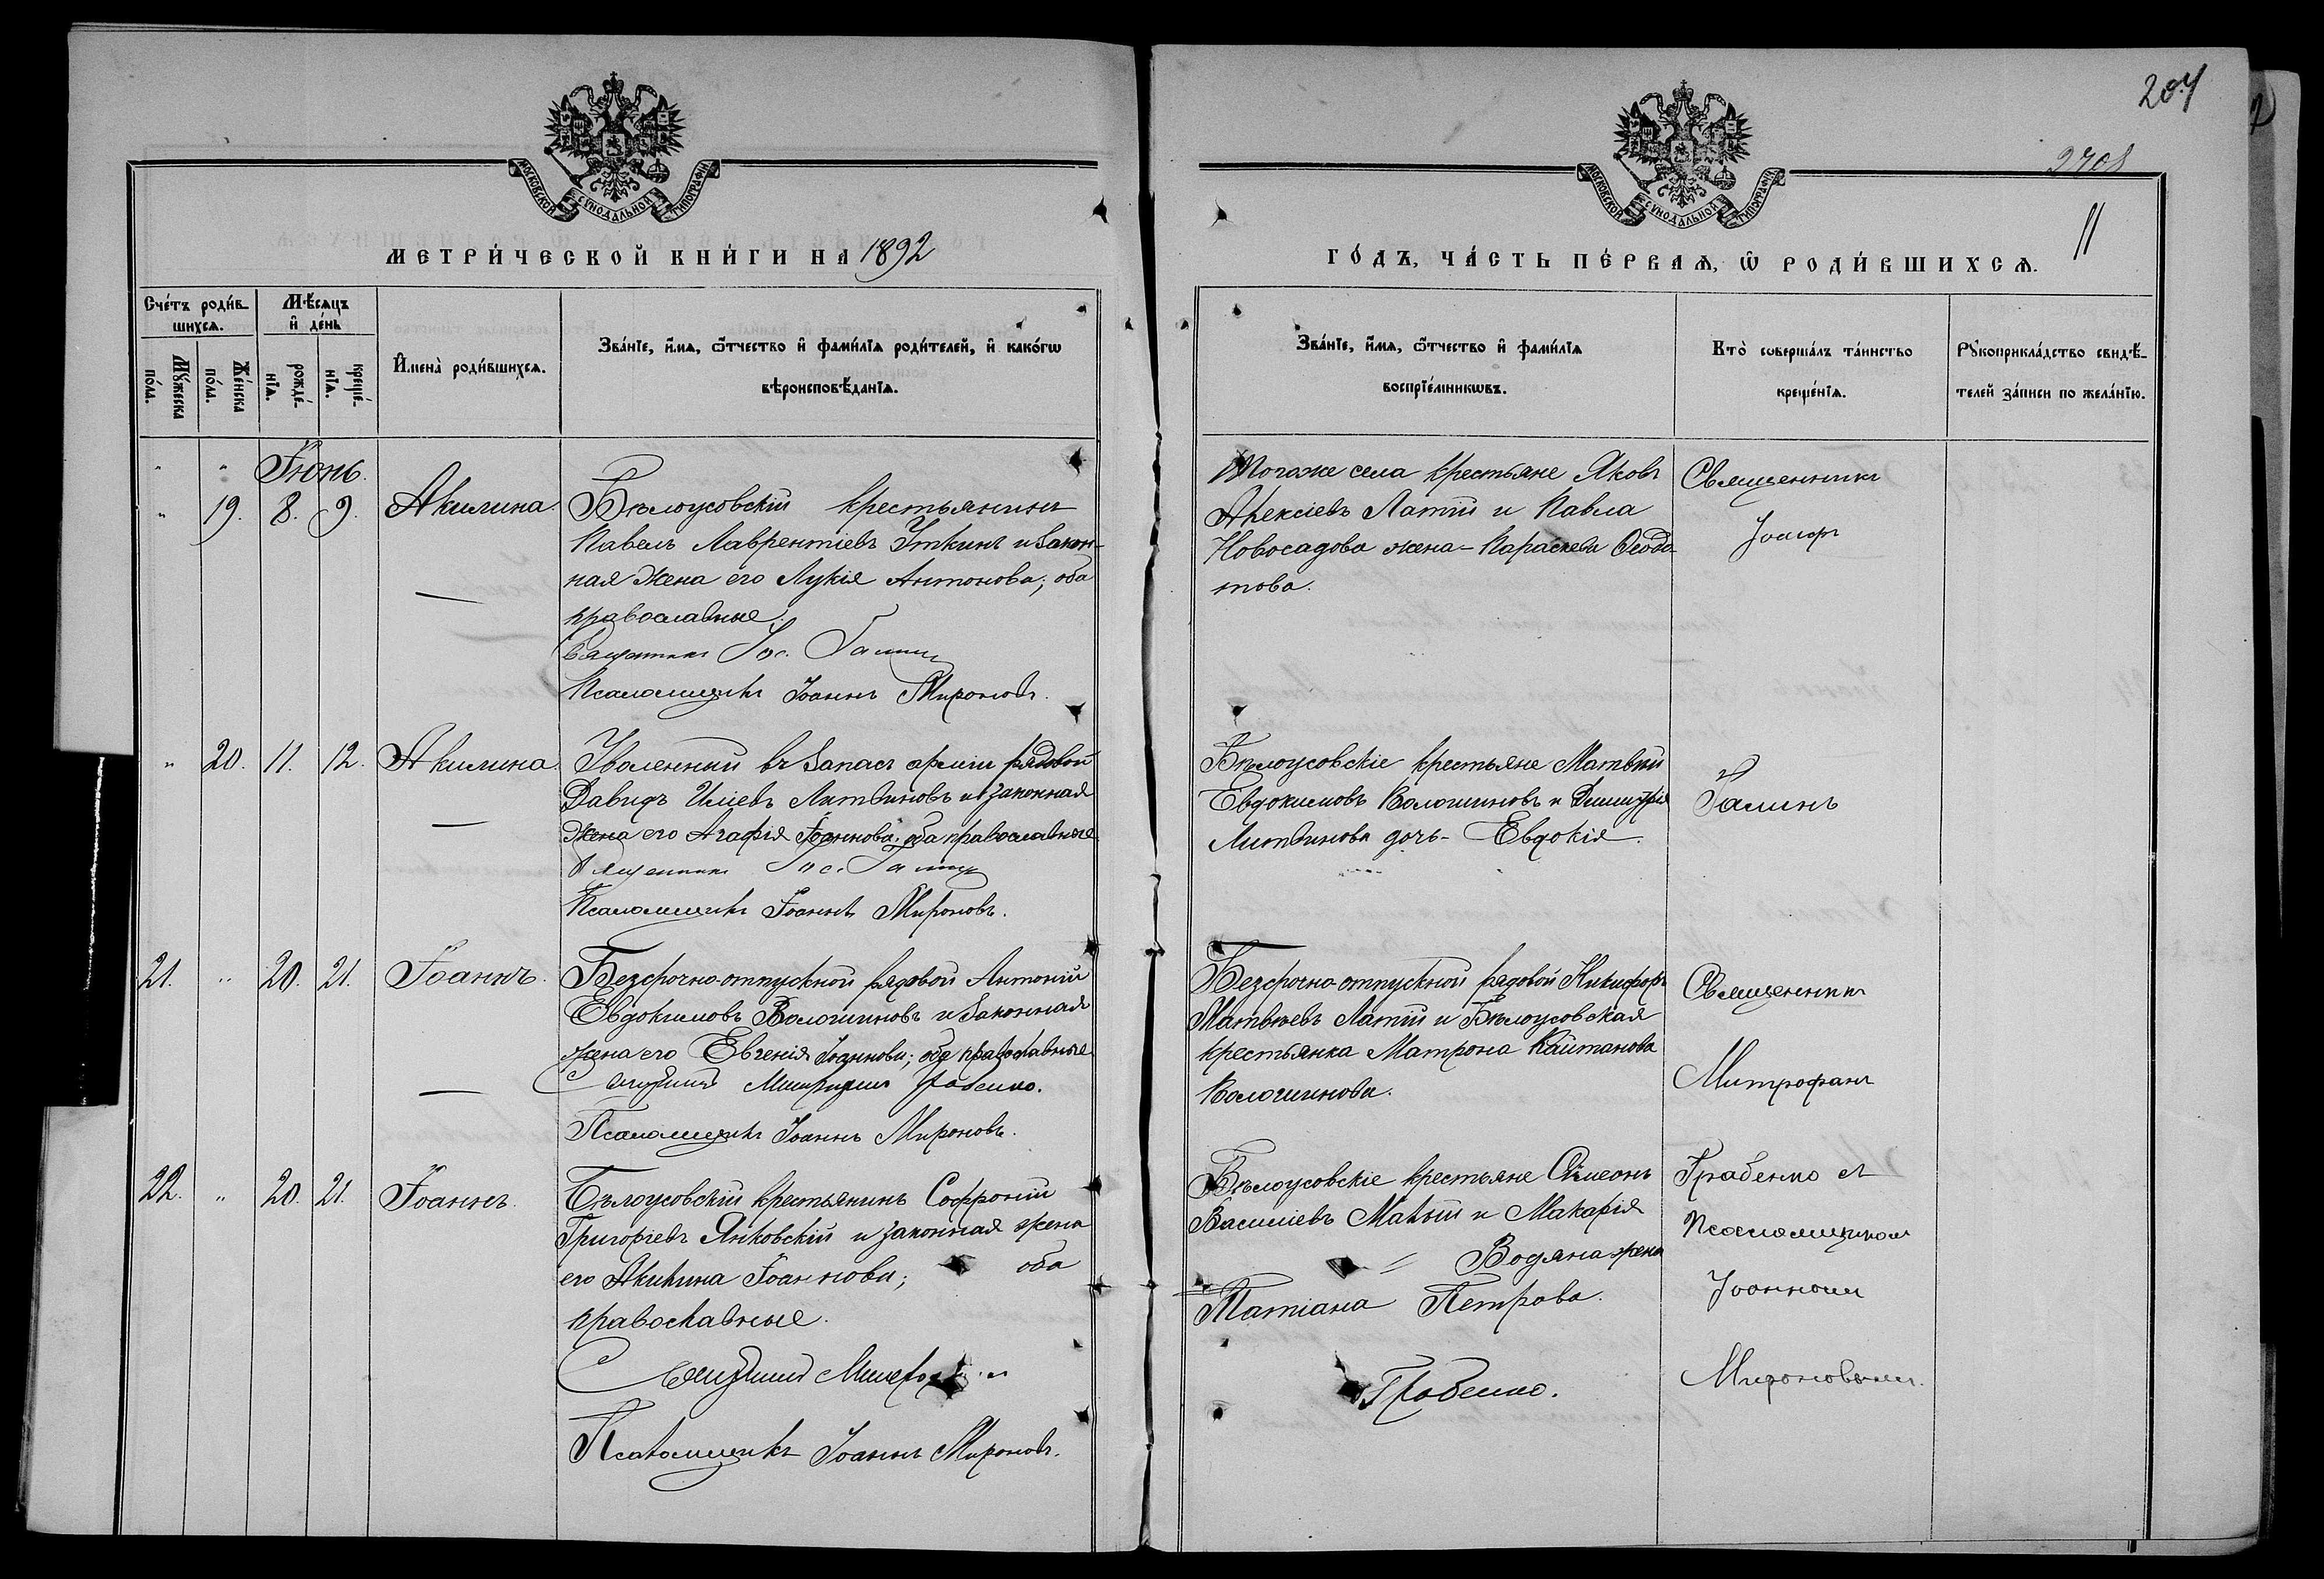 204
2708
11
МОСКОВСКОЙ СѴНОДАЛЬНОЙ ТИПОГРАФІИ
МОСКОВСКОЙ СѴНОДАЛЬНОЙ ТИПОГРАФІИ
МЕТРИ́ЧЕСКОЙ КНИ́ГИ НА 1892
ГО́ДЪ, ЧА́СТЬ ПЕ́РВАѦ, Ѡ҆ РОДИ́ВШИХСѦ.
Сче́тъ роди́в-
шихсѧ.
Мѣ́сѧцъ
и҆ де́нь
Мꙋ́жеска по́ла.
Же́нска по́ла.
рожде́-нїѧ.
креще́-нїѧ.
И҆мена̀ роди́вшихсѧ.
Зва́нїе, и҆́мѧ, ѻ҆́тчество и҆ фами́лїѧ роди́телей, и҆ како́гѡ
вѣроисповѣ́данїѧ.
Зва́нїе, и҆́мѧ, ѻ҆́тчество и҆ фами́лїѧ
воспрїе́мникѡвъ.
Кто̀ соверша́лъ та́инство
креще́нїѧ.
Рꙋкоприкла́дство свидѣ́-
телей за́писи по жела́нїю.
" " Іюнь.
" 19. 8. 9. Акилина. Бѣлоусовскій крестьянинъ
Павелъ Лаврентіевъ Уткинъ и закон-
ная жена его Лукія Антонова; оба
православные.
Священникъ Іос. Галинъ
Псаломщикъ Іоаннъ Мироновъ.
Тогоже села крестьяне Яковъ
Алексіевъ Латій и Павла
Новосадова жена - Параскева Ѳеодо-
това.
Священникъ
Іосифъ
" 20. 11. 12. Акилина. Уволенный въ запасъ арміи рядовой
Давидъ Иліевъ Литвиновъ и законная
жена его Агафія Іоаннова; оба православные
Священникъ Іос. Галинъ
Псаломщикъ Іоаннъ Мироновъ.
Бѣлоусовскіе крестьяне Матвѣй
Евдокимовъ Волошиновъ и Димитрія
Литвинова дочь - Евдокія.
Галинъ
21. " 20. 21. Іоаннъ. Безсрочно-отпускной рядовой Антоній
Евдокимовъ Волошиновъ и законная
жена его Евгенія Іоаннова; оба православные
Священникъ Митрофанъ Грабенко.
Псаломщикъ Іоаннъ Мироновъ.
Безсрочно-отпускной рядовой Никифоръ
Матвѣевъ Латій и Бѣлоусовская
крестьянка Матрона Кайтанова
Волошинова.
Священникъ
Митрофанъ
22. " 20. 21. Іоаннъ. Бѣлоусовскій крестьянинъ Софроній
Григоріевъ Янковскій и законная жена
его Акилина Іоаннова; оба
православные.
Священникъ Митрофанъ
Псаломщикъ Іоаннъ Мироновъ.
Бѣлоусовскіе крестьяне Сѵмеонъ
Василіевъ Малый и Макарія
Водяна жена
Татіана Петрова.
Грабенко.
Грабенко съ
Псаломщикомъ
Іоанномъ
Мироновымъ.